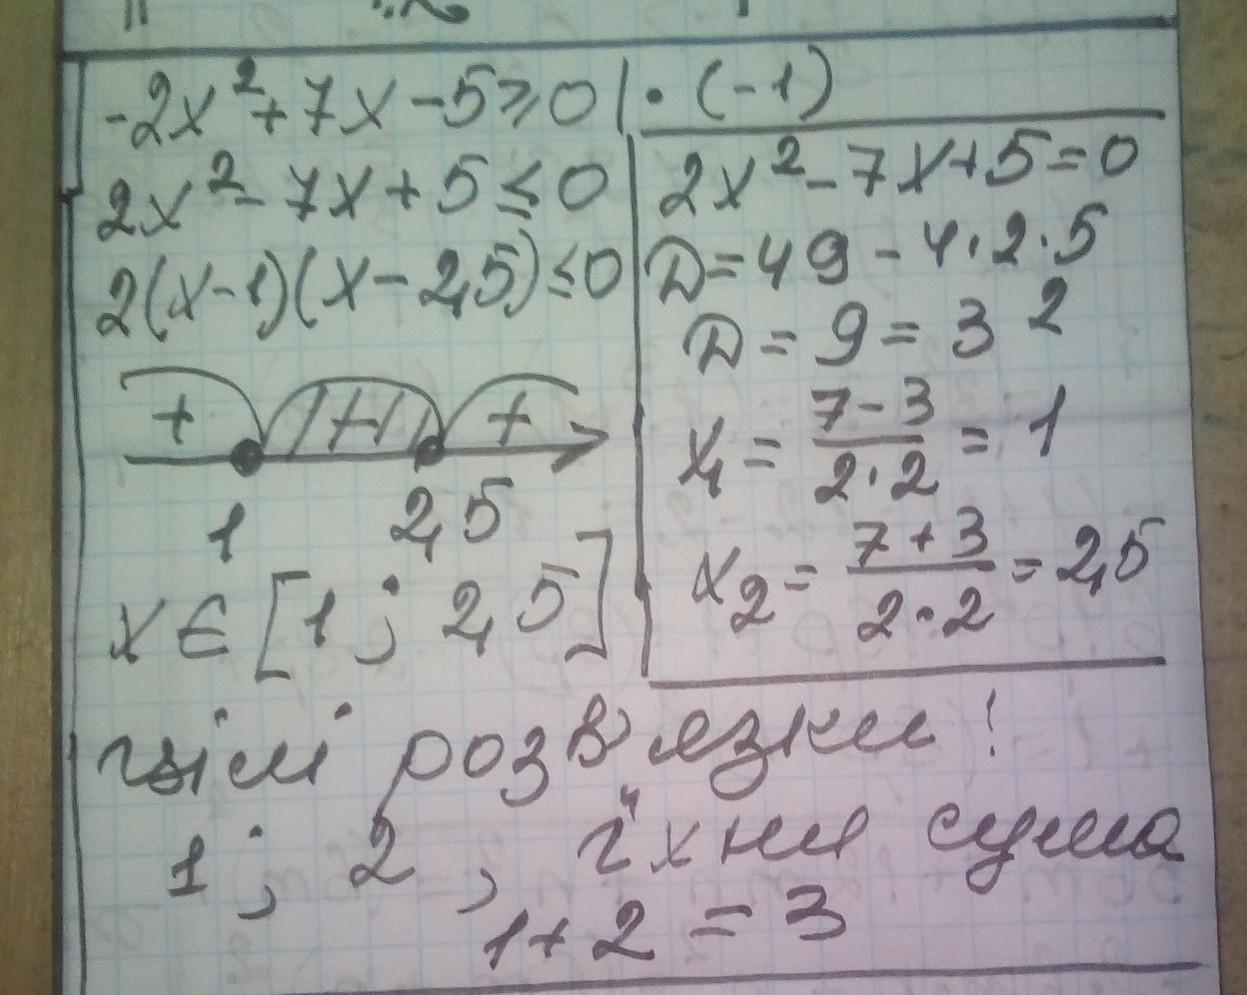 -2x²+7x-5≥0 | · (-1)
2x²-7x+5≤0
2(x-1)(x-2,5)≤0
+ + +
1 2,5
x∈[1; 2,5]
2x²-7x+5=0
D=49-4·2·5
D=9=3²
x₁=(7-3)/(2·2)=1
x₂=(7+3)/(2·2)=2,5
цілі розв'язки!
1; 2, їхни сума
1+2=3